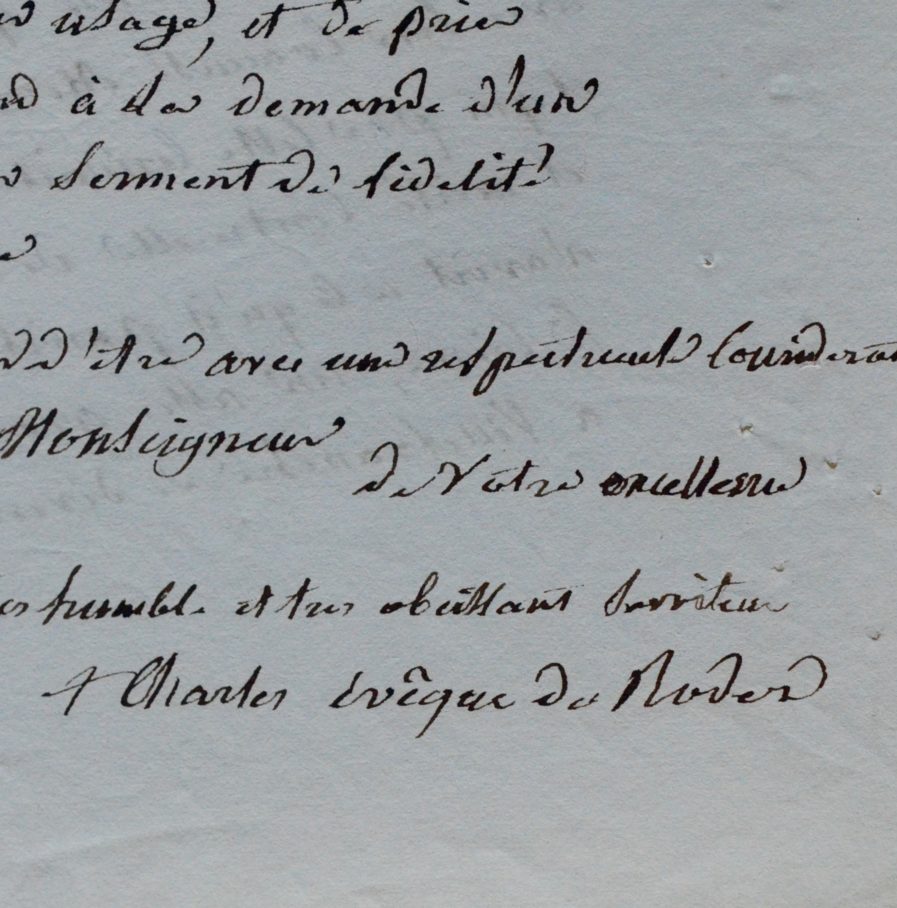 usage, et de prier
à la demande d'un
serment de fidelité
d'être avec une respectueuse
Monseigneur
de Votre excellence
humble et tres obeissant serviteur
+ Charles évêque de Rodez